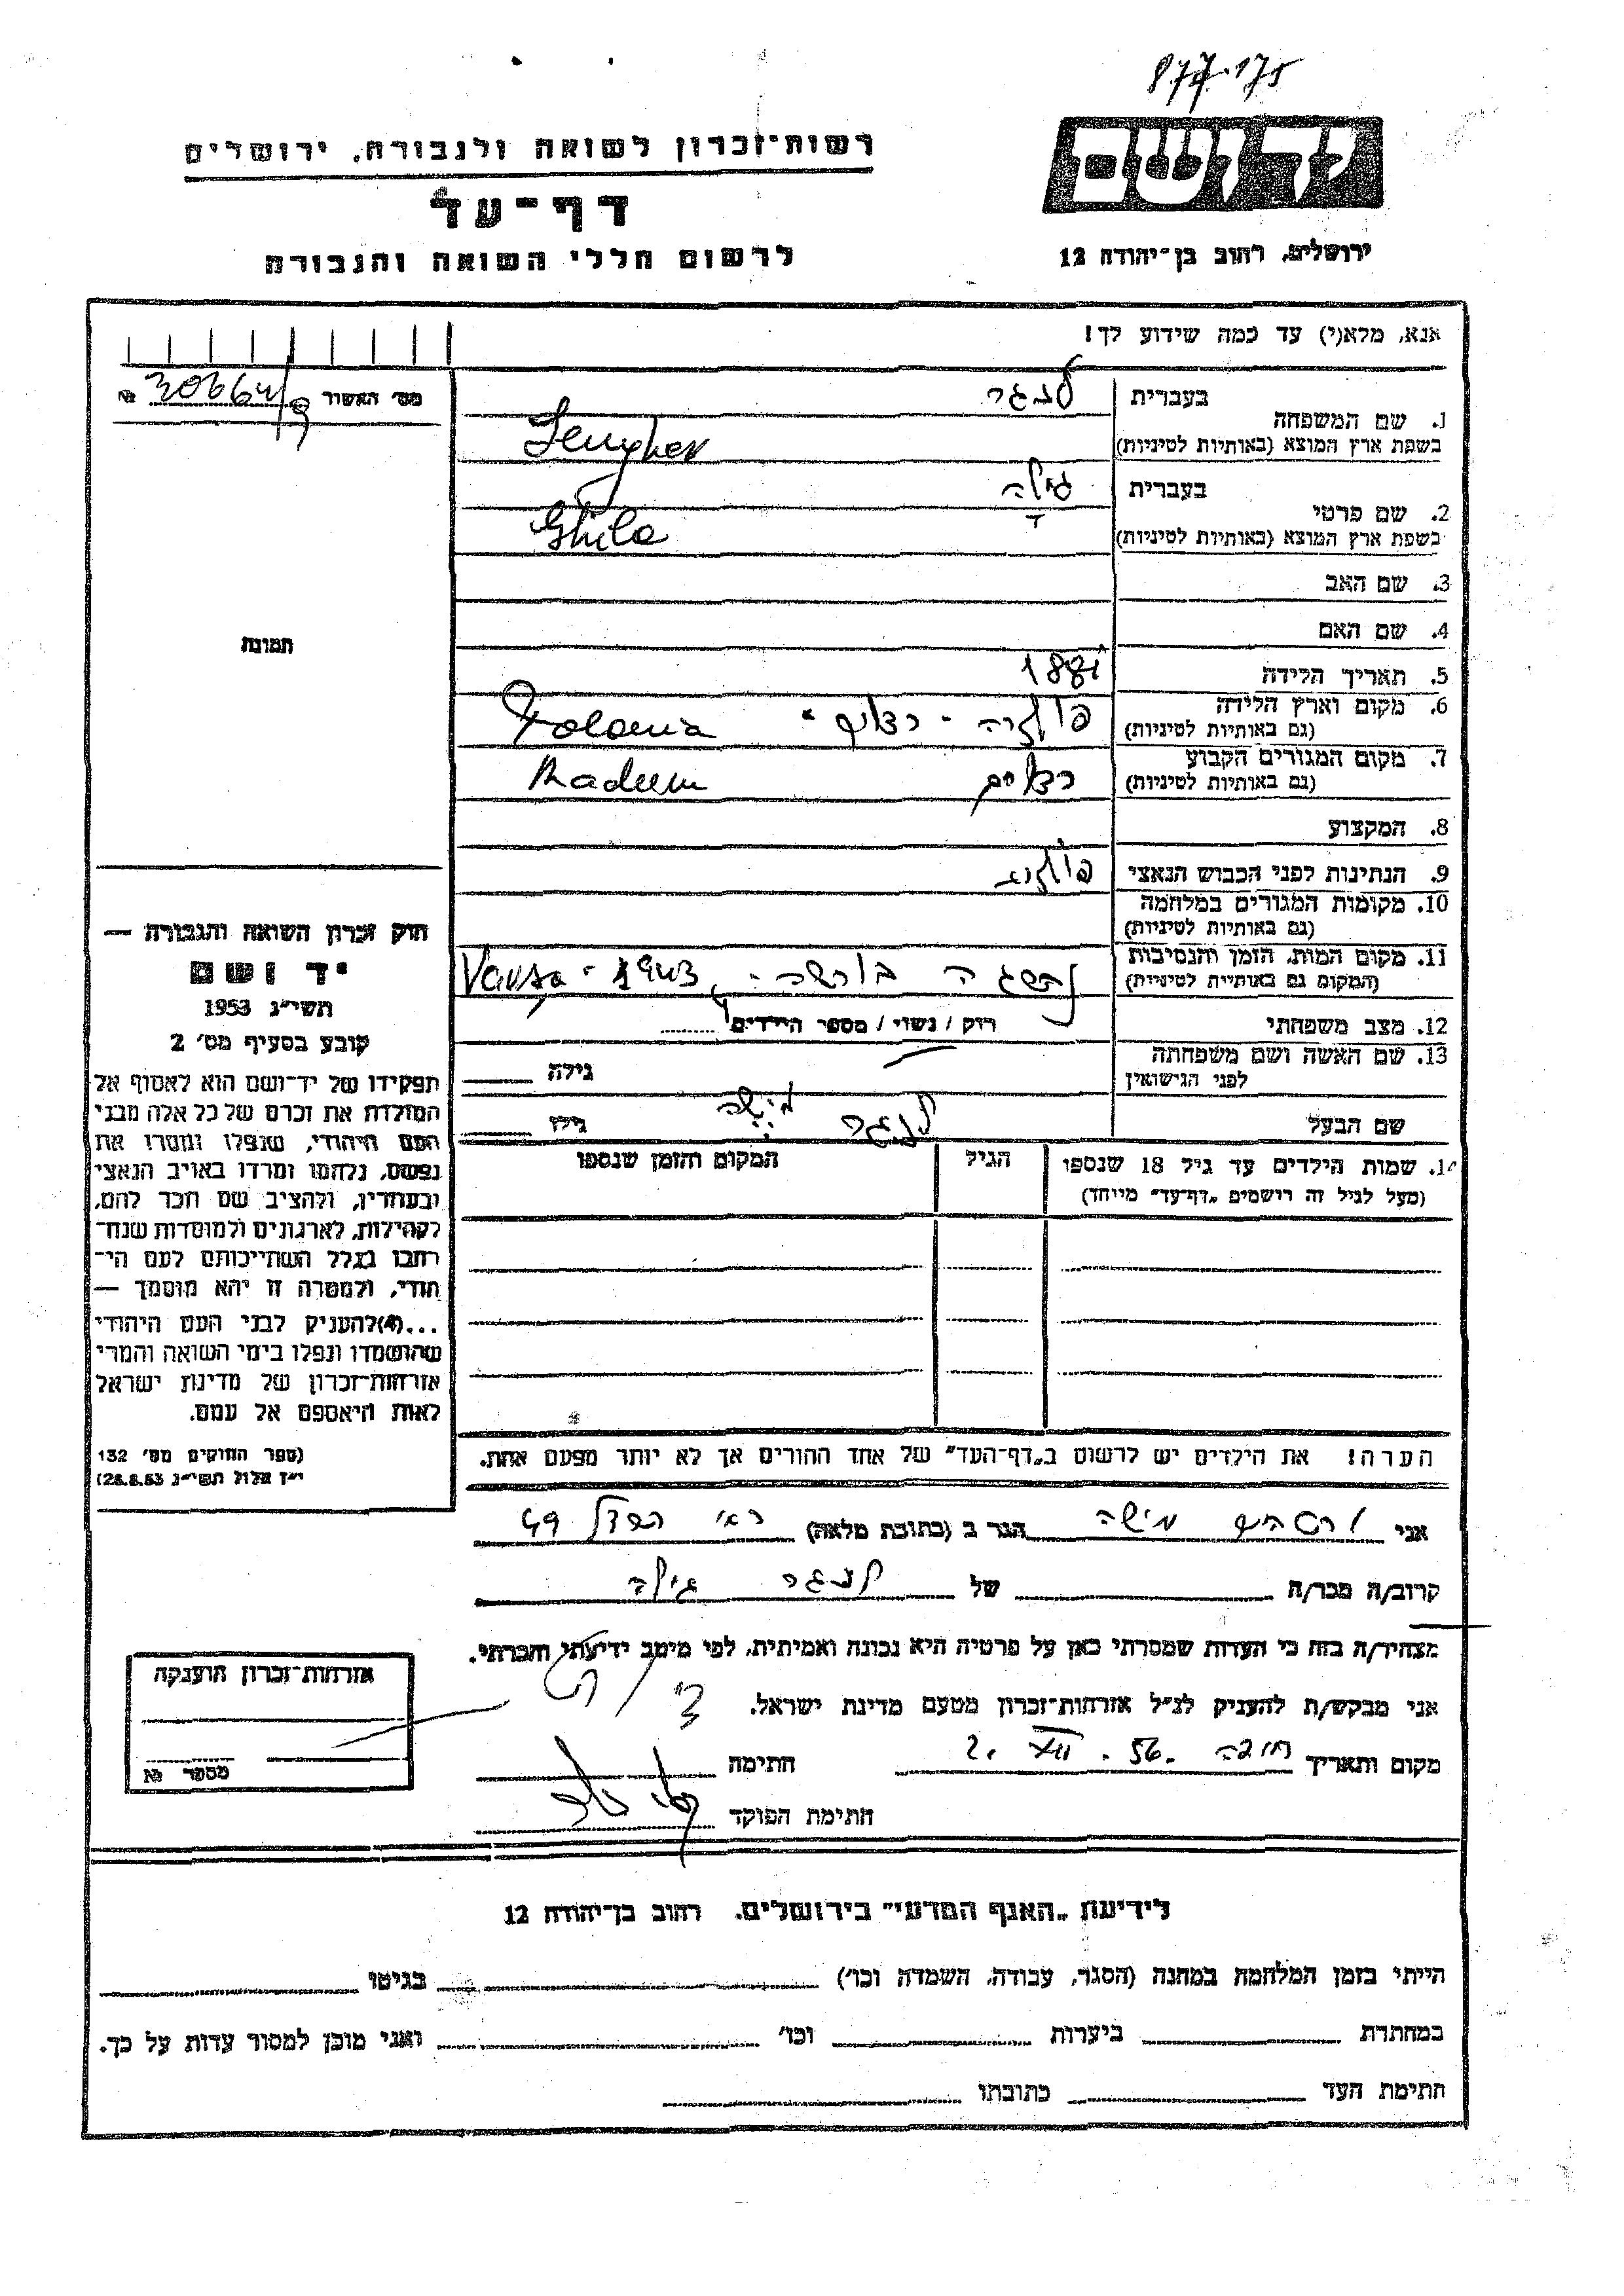 877-175
רשות־זכרון לשואה ולגבורה, ירושלים
דף־עד
לרשום חללי השואה והגבורה
יד ושם
ירושלים, רחוב בן־יהודה 12
אנא, מלא(י) עד כמה שידוע לך!
מס׳ האשור №
1. שם המשפחה
בעברית לנגר
בשפת ארץ המוצא (באותיות לטיניות)
2. שם פרטי
בעברית גילה
בשפת ארץ המוצא (באותיות לטיניות) Ghila
3. שם האב
4. שם האם
5. תאריך הלידה 1881
6. מקום וארץ הלידה
(גם באותיות לטיניות) פולניה - Polonia
7. מקום המגורים הקבוע
(גם באותיות לטיניות)
8. המקצוע
9. הנתינות לפני הכבוש הנאצי
10. מקומות המגורים במלחמה
(גם באותיות לטיניות)
11. מקום המות, הזמן והנסיבות
(המקום גם באותיות לטיניות) בורשה - 1943
12. מצב משפחתי רווק / נשוי / מספר הילדים
13. שם האשה ושם משפחתה
לפני הנישואין גילה
שם הבעל לנגר גילו
14. שמות הילדים עד גיל 18 שנספו הגיל המקום והזמן שנספו
(מעל לגיל זה רושמים „דף־עד״ מיוחד)
הערה! את הילדים יש לרשום ב„דף־העד״ של אחד ההורים אך לא יותר מפעם אחת.
תמונה
חוק זכרון השואה והגבורה —
יד ושם
תשי״ג 1953
קובע בסעיף מס׳ 2
תפקידו של יד־ושם הוא לאסוף אל
המולדת את זכרם של כל אלה מבני
העם היהודי, שנפלו ומסרו את
נפשם, נלחמו ומרדו באויב הנאצי
ובעוזריו, ולהציב שם וזכר להם,
לקהילות, לארגונים ולמוסדות שנח־
רבו בגלל השתייכותם לעם הי־
הודי, ולמטרה זו יהא מוסמך —
...(4) להעניק לבני העם היהודי
שהושמדו ונפלו בימי השואה והמרי
אזרחות־זכרון של מדינת ישראל
לאות היאספם אל עמם.
(ספר החוקים מס׳ 132
י״ז אלול תשי״ג 28.8.53)
אני משה הגר ב (כתובת מלאה) 49
קרוב/ה מכר/ה של לנגר גילה
מצהיר/ה בזה כי העדות שמסרתי כאן על פרטיה היא נכונה ואמיתית, לפי מיטב ידיעתי והכרתי.
אני מבקש/ת להעניק לנ״ל אזרחות־זכרון מטעם מדינת ישראל.
מקום ותאריך 2. XII. 56. חתימה
חתימת הפוקד
אזרחות־זכרון הוענקה
מספר №
לידיעת „האגף המדעי״ בירושלים, רחוב בן־יהודה 12
הייתי בזמן המלחמה במחנה (הסגר, עבודה, השמדה וכו׳) בגיטו
במחתרת ביערות וכו׳ ואני מוכן למסור עדות על כך.
חתימת העד כתובתו